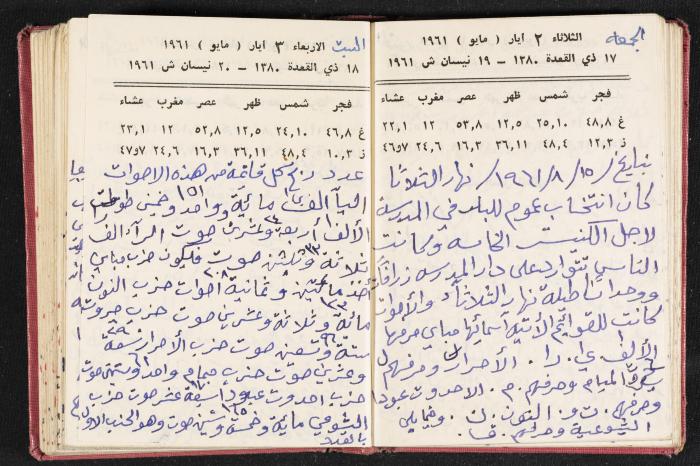 الجمعه
الثلاثاء ٢ آيار ( مايو ) ١٩٦١
١٧ ذي القعدة ١٣٨٠ – ١٩ نيسان ش ١٩٦١
فجر شمس ظهر عصر مغرب عشاء
غ ٤٨,٨ ٢٥,١٠ ١٢,٥ ٥٣,٨ ١٢ ٢٢,١
ز ١٢,٣ ٤٨,٤ ٣٦,١١ ١٦,٣ ٢٤,٦ ٤٦و٧
بتاريخ /١٥/ ٨/ ١٩٦١/ نهار الثلاثا
كان انتخاب عموم للبلد في المدرسة
لاجل الكنيست الخامسه وكانت
الناس تتوارد على دار المدرسه زرافاتا
ووحدانا طيلة نهار الثلاثاء والأصوات
كانت للقوائم الأتية أسمائها مباي حرفها
الألف . ا. الأحرار وحرفهم ل
المبام وحرفهم . م . الاحدوت عبودا
وحرفهم . ت و . التعون . ن .
الشوعية وحرفهم . ق .
السبت
الاربعاء ٣ ايار ( مايو ) ١٩٦١
١٨ ذي القعدة ١٣٨٠ – ٢٠ نيسان ش ١٩٦١
فجر شمس ظهر عصر مغرب عشاء
غ ٤٦,٨ ٢٤,١٠ ١٢,٥ ٥٢,٨ ١٢ ٢٣,١
ز ١٠,٣ ٤٨,٤ ٣٦,١١ ١٦,٣ ٢٤,٦ ٤٧و٧
عدد كل قائمة من هذه الاصوات
مائية وواحد وخمسين صوت ١٥١
الألف أربعة وعشرين صوت ٢٤ الف
ثلاثة وثلثين صوت ٣٣ فيكون حزب مباي
أخذ مائتين وثمانية أصوات ٢٠٨ حزب
مائة وثلاثة وعشرين صوت حزب حروت
ستة وتسعين صوت ٩٦ حزب الأحرار تسعة
وعشرين صوت حزب مبام واحد وستين صوت ٦١
حزب احدوت عبودا سبعة عشر صوت ١٧ حزب
الشوعي مائة وخمسة وستين صوت ١٦٥ وهو الحزب الاول
بالبلد